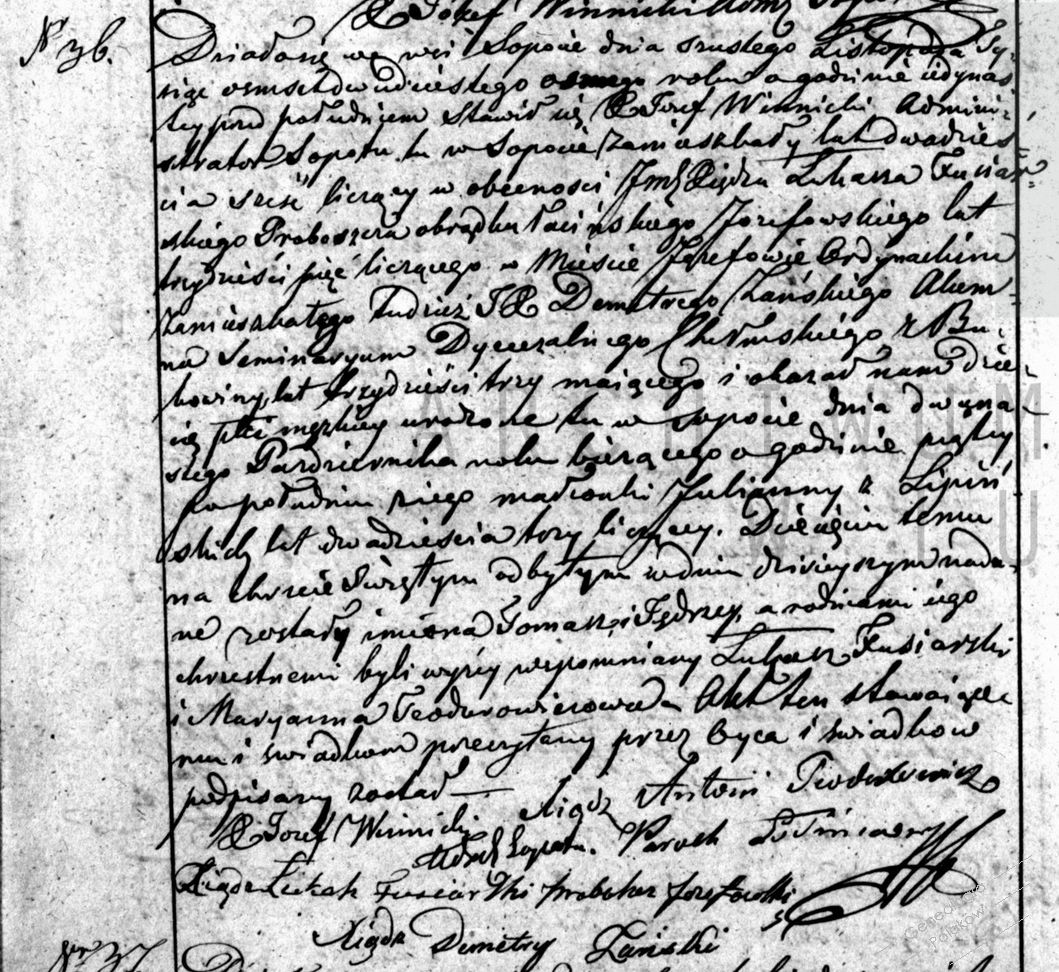 X Józef Winnicki
N 36.
Działo się we wsi Sopocie dnia szustego Listopada Ty-
siąc osmset dwudziestego osmego roku o godzinie iedynas
tey przed południem Stawił się X Jozef Winnicki Admini-
strator Sopotu tu w Sopocie zamieszkały lat dwadzieś-
cia sześć liczący w obecności Jmć Xiędza Łukasza Fusiar-
skiego Proboszcza obrządku łacińskiego Jozefowskiego lat
trzydzieści pięć liczącego w Mieście Jozefowie Ordynackim
zamieszkałego tudzież JX Demetrego Zańskiego Alum-
na Seminaryum Dyecezalnego Chełmskiego z Bu-
kowiny lat trzydzieści trzy maiącego i okazał nam dzie-
cię płci męzkiey urodzone tu w Sopocie dnia dwuna-
stego Pazdziernika roku bieżącego o godzinie piątey
po południu z iego małżonki Julianny z Lipiń-
skich lat dwadzieścia trzy liczącey. Dziecięciu temu
na chrzcie Swiętym odbytym w dniu dzisieyszym nada-
ne zostały imiona Tomasz i Jędrzey, a rodzicami iego
chrzestnemi byli wyżey wspomniany Łukasz Fusiarski
i Maryanna Teodorowiczowa Akt ten stawaiące-
mu i swiadkom przeczytany przez Oyca i swiadków
podpisany został —
Xiądz Antoni Teodorowicz
X Jozef Winnicki
Adm Sopotu. Paroch
Xiądz Łukasz Fusiarski Proboszcz Jozefowski
Xiądz Demetry Zański
Nr 37